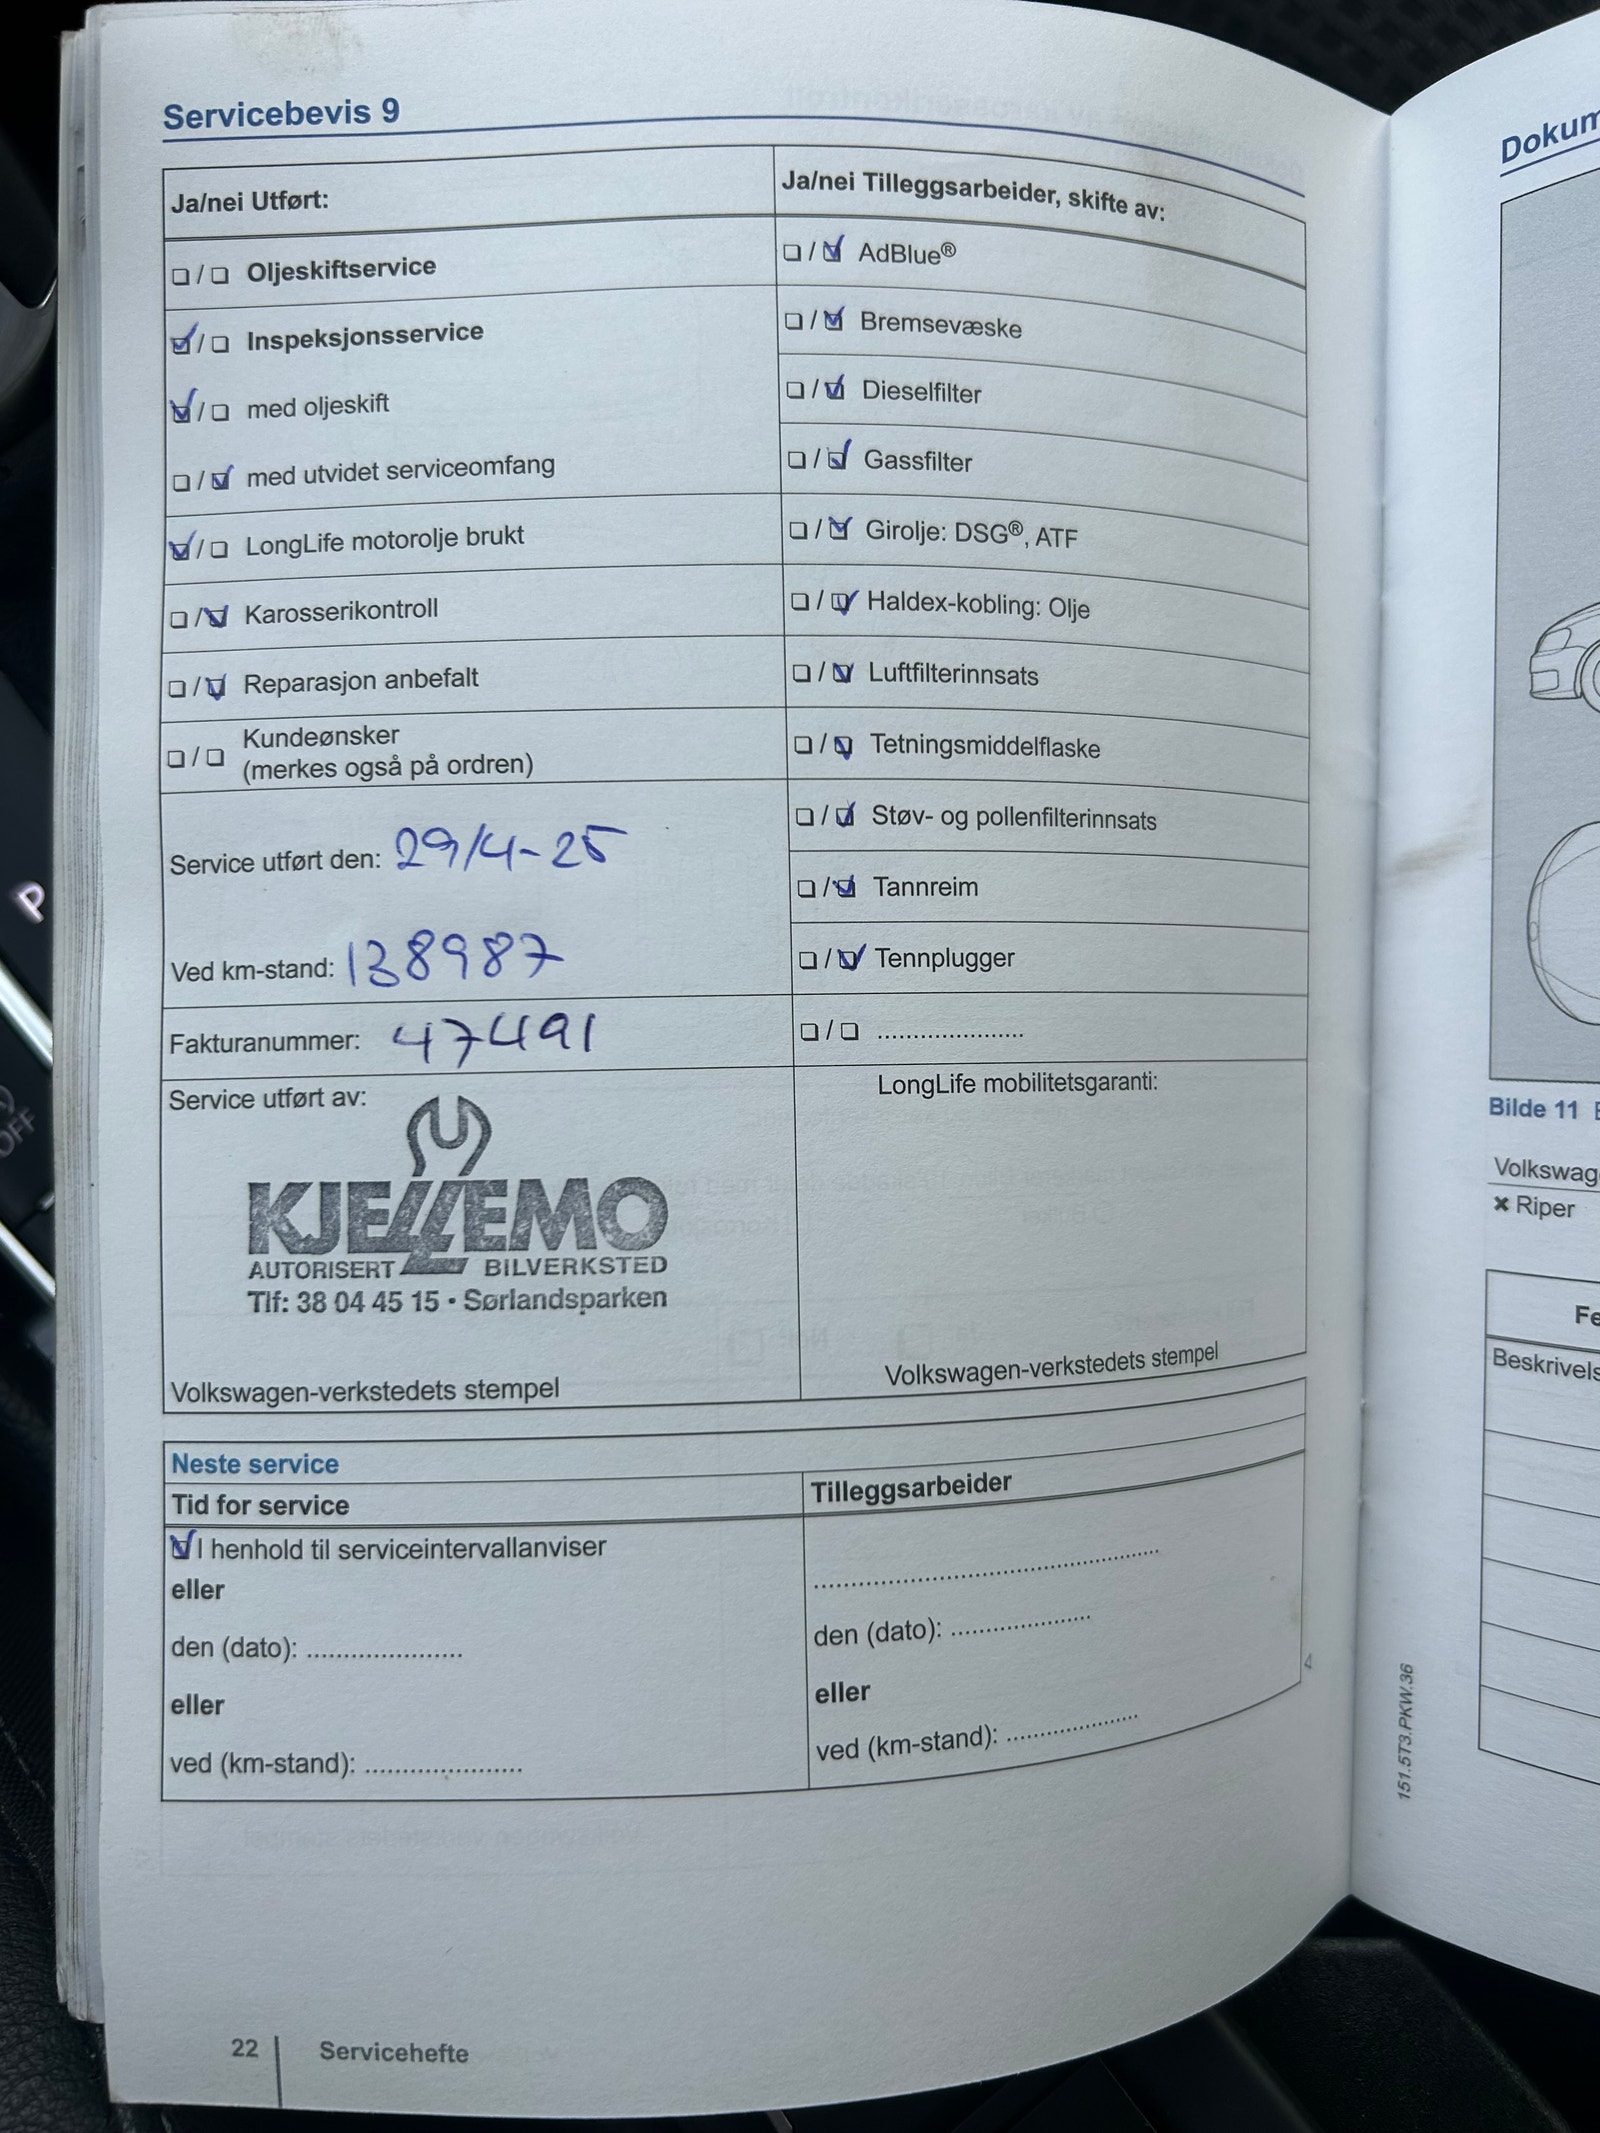 Servicebevis 9
Ja/nei Utført:
☐ / ☐ Oljeskiftservice
☑ / ☐ Inspeksjonsservice
☑ / ☐ med oljeskift
☐ / ☑ med utvidet serviceomfang
☑ / ☐ LongLife motorolje brukt
☐ / ☑ Karosserikontroll
☐ / ☑ Reparasjon anbefalt
☐ / ☐ Kundeønsker
(merkes også på ordren)
Service utført den: 29/4-25
Ved km-stand: 138987
Fakturanummer: 47491
Service utført av:
KJELLEMO
AUTORISERT BILVERKSTED
Tlf: 38 04 45 15 • Sørlandsparken
Volkswagen-verkstedets stempel
Ja/nei Tilleggsarbeider, skifte av:
☐ / ☑ AdBlue®
☐ / ☑ Bremsevæske
☐ / ☑ Dieselfilter
☐ / ☑ Gassfilter
☐ / ☑ Girolje: DSG®, ATF
☐ / ☑ Haldex-kobling: Olje
☐ / ☑ Luftfilterinnsats
☐ / ☑ Tetningsmiddelflaske
☐ / ☑ Støv- og pollenfilterinnsats
☐ / ☑ Tannreim
☐ / ☑ Tennplugger
☐ / ☐ .....................
LongLife mobilitetsgaranti:
Volkswagen-verkstedets stempel
Neste service
Tid for service
☑ I henhold til serviceintervallanviser
eller
den (dato): ......................
eller
ved (km-stand): ......................
Tilleggsarbeider
................................................
den (dato): ....................
eller
ved (km-stand): ...................
4
22 Servicehefte
151.5T3.PKW.36
Dokum
Bilde 11
Volkswag
✖ Riper
Fe
Beskrivels
P
OFF